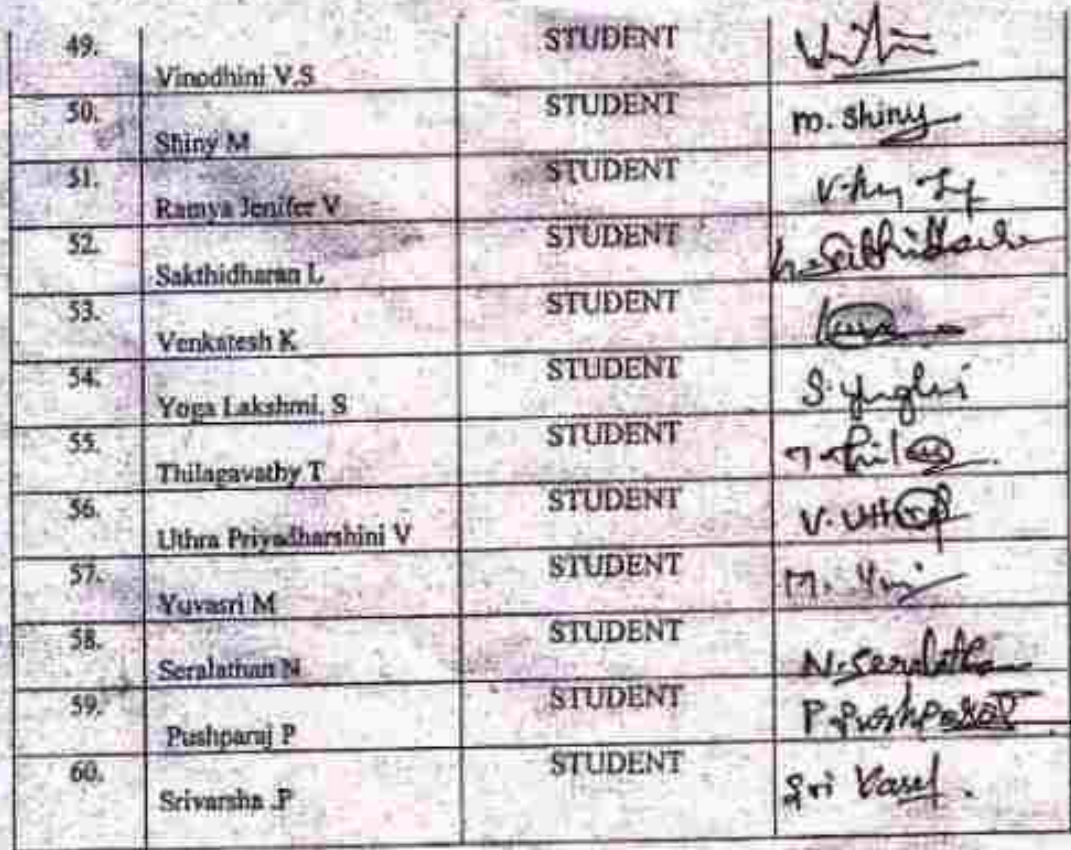 49. Vinodhini V.S STUDENT
50. Shiny M STUDENT m. shiny
51. Ramya Jenifer V STUDENT
52. Sakthidharan L STUDENT
53. Venkatesh K STUDENT
54. Yoga Lakshmi, S STUDENT
55. Thilagavathy T STUDENT
56. Uthra Priyadharshini V STUDENT
57. Yuvasri M STUDENT
58. Seralathan N STUDENT N. Seralatha
59. Pushparaj P STUDENT P. Pushparaj
60. Srivarsha .P STUDENT